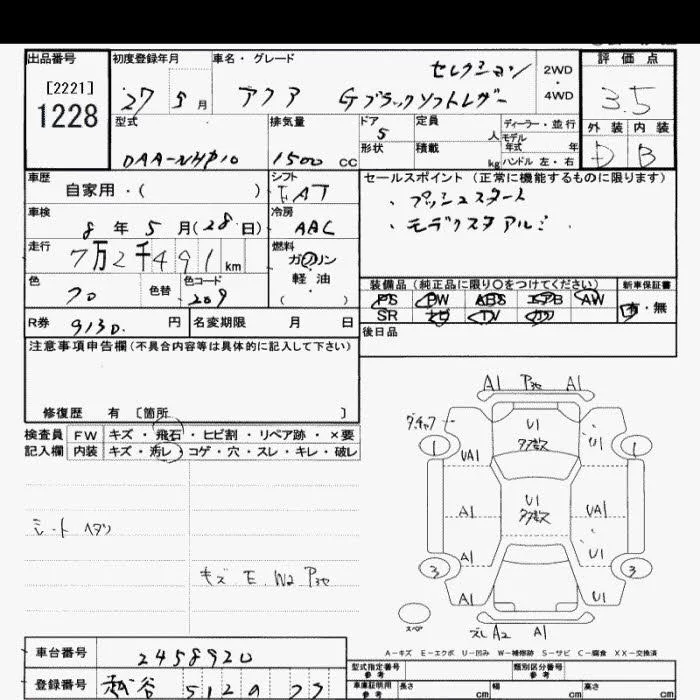 出品番号
[2221]
1228
初度登録年月
27 5 月
車名・グレード
セレクション
アクア Gブラックソフトレザー
2WD
4WD
評価点
3.5
外装 内装
D B
型式
DAA-NHP10
排気量
1500 cc
ドア
5
形状
定員 人
積載 kg
ディーラー・並行
モデル年式 年
ハンドル 左・右
車歴
自家用・( )
シフト
FAT
セールスポイント(正常に機能するものに限ります)
・プッシュスタート
・モデリスタアルミ
車検
8 年 5 月(28 日)
冷房
AAC
走行
7万2千491 km
燃料
ガソリン
軽油
( ・ )
色
クロ
色替
色コード
209
装備品(純正品に限り○をつけてください)
PS PW ABS エアB AW
SR ナビ TV カワ
新車保証書
有・無
R券 9130. 円
名変期限 月 日
後日品
注意事項申告欄(不具合内容等は具体的に記入して下さい)
修復歴 有 〔箇所 〕
検査員 FW キズ・飛石・ヒビ割・リペア跡・×要
記入欄 内装 キズ・汚レ・コゲ・穴・スレ・キレ・破レ
シート ヘタリ
キズ E W2 P3セ
A1 P3セ A1
1 U1 U1 1
UA1
A1 U1 UA1
A1 U1
3 A1 U1 3
スペア
ズレ A2 A1
A-キズ E-エクボ U-凹み W-補修跡 S-サビ C-腐食 XX-交換済
車台番号 2458920
登録番号 越谷 512
型式指定番号
参考
類別区分番号
参考
車庫証明用
参考
長さ cm 幅 cm 高さ cm